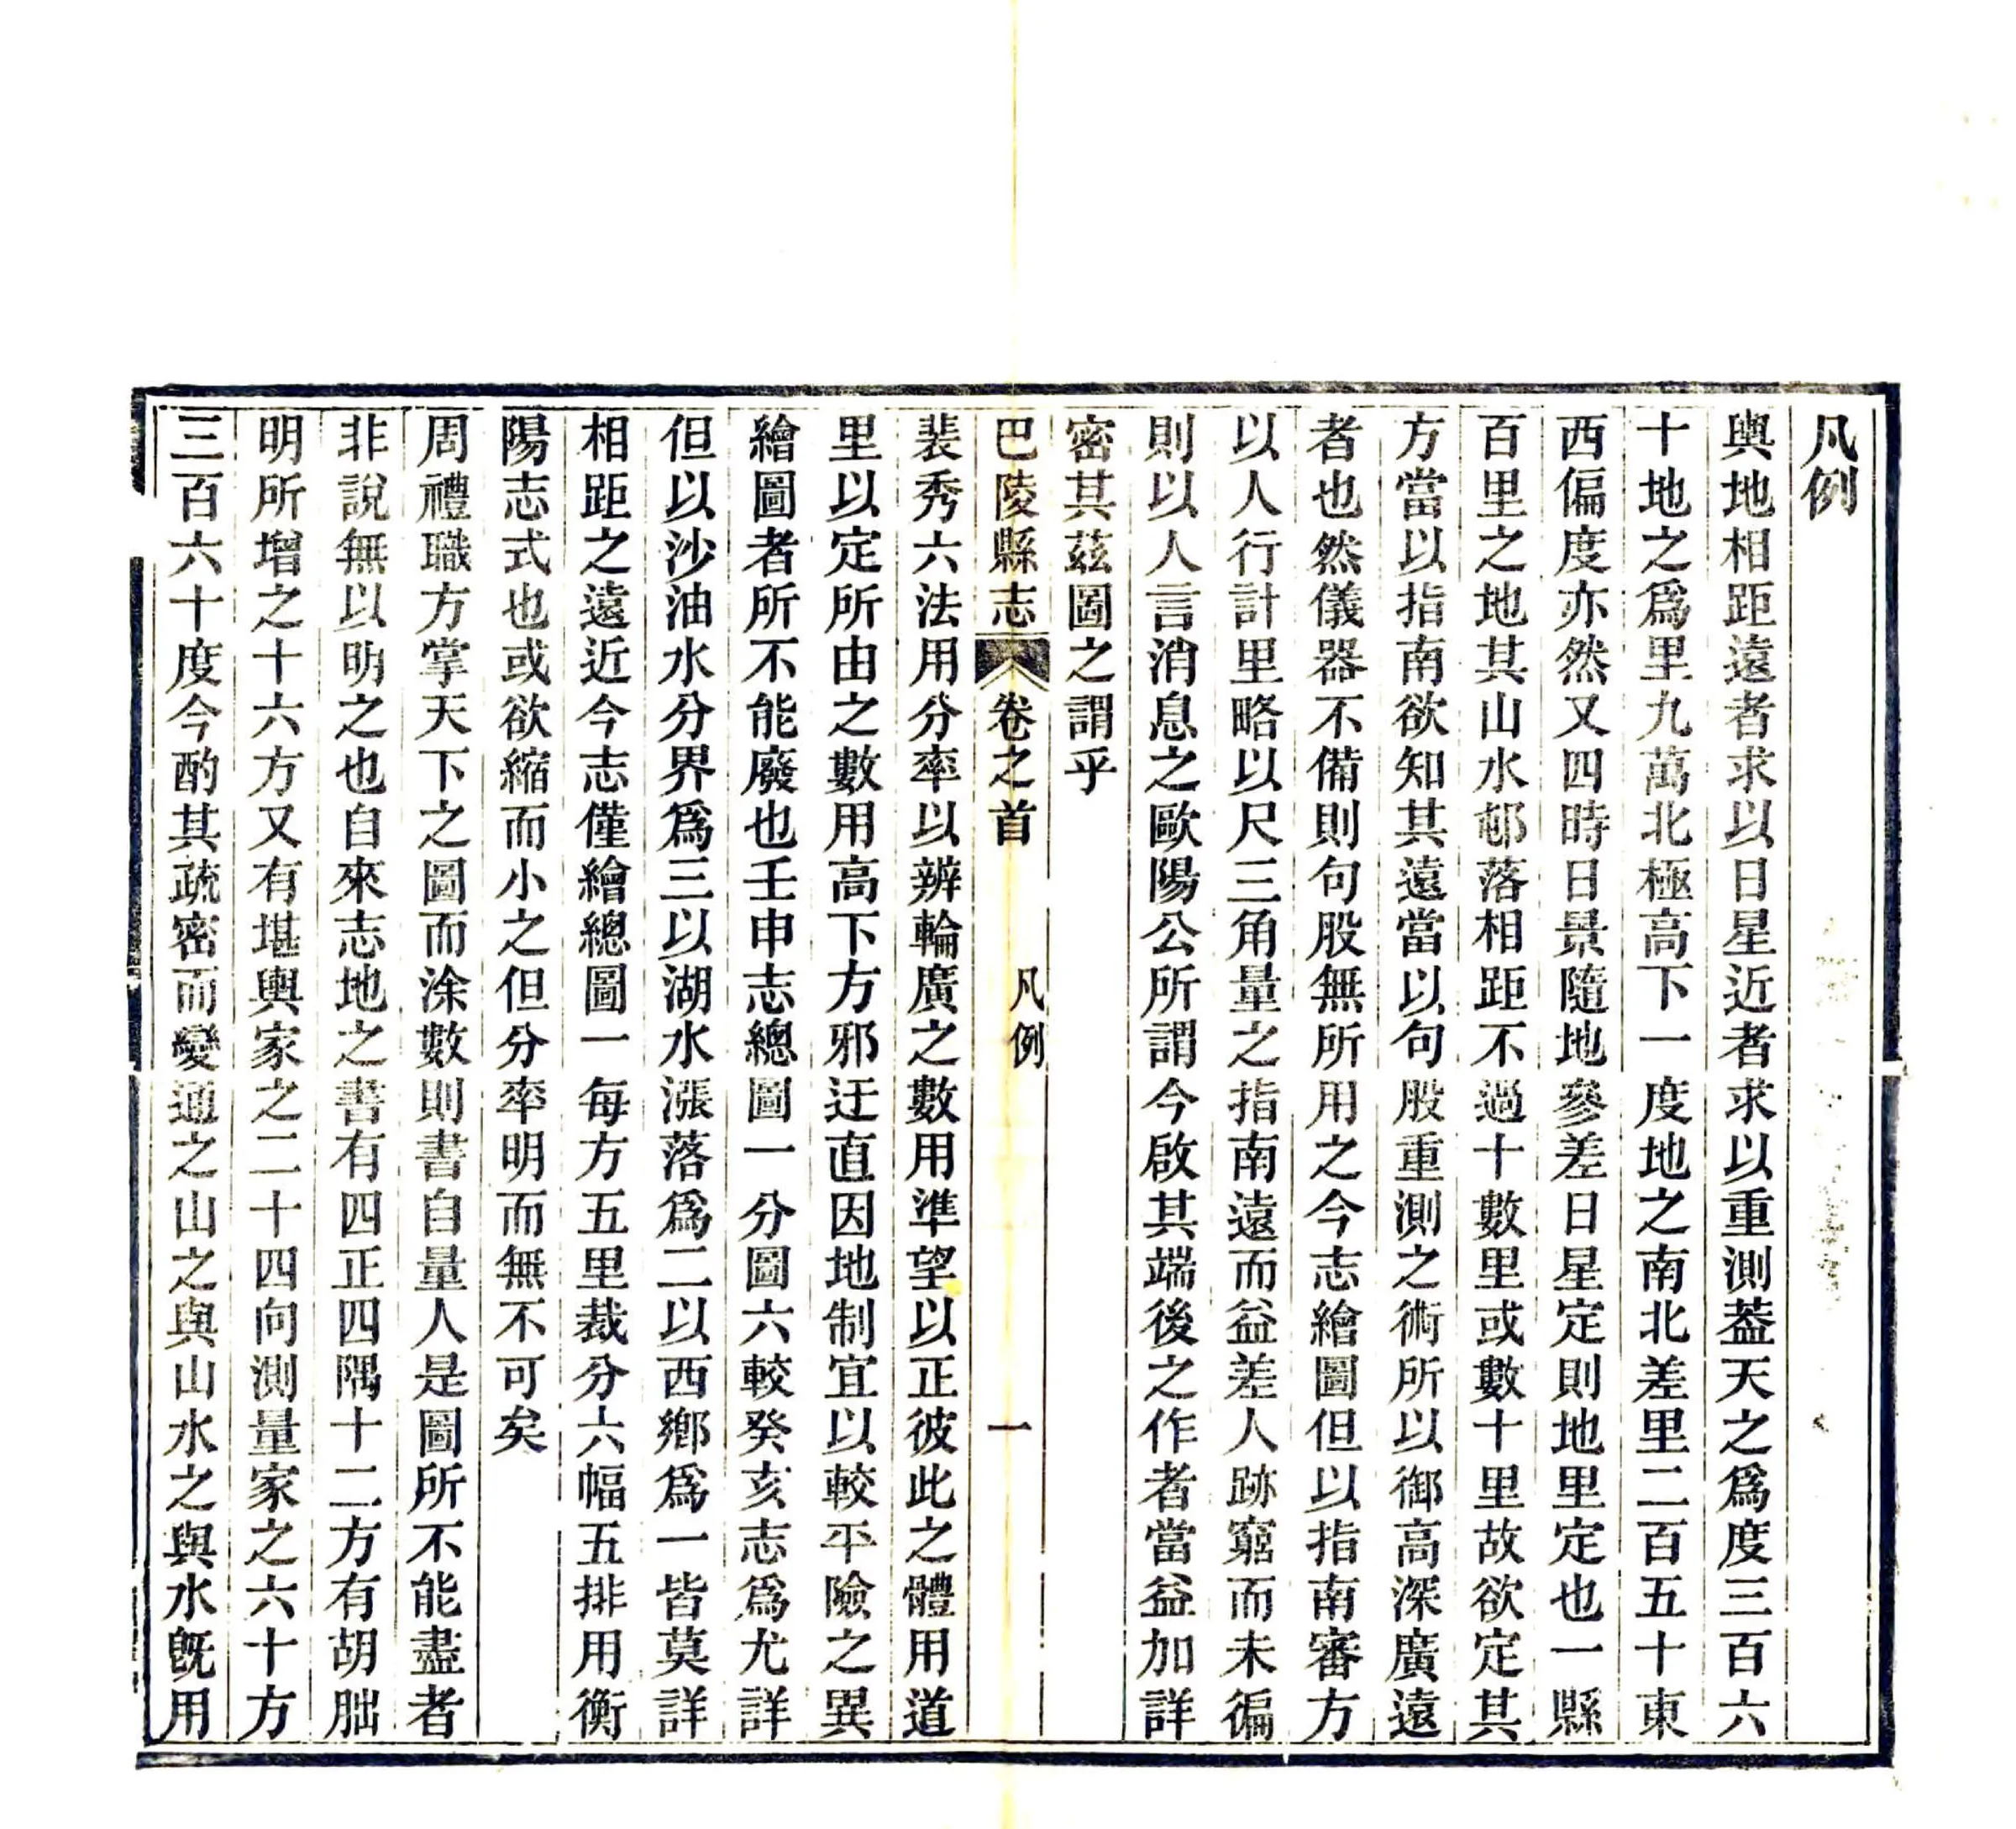 凡例
輿地相距遠者求以日星近者求以重測葢天之爲度三百六
十地之爲里九萬北極高下一度地之南北差里二百五十東
西偏度亦然又四時日景隨地參差日星定則地里定也一縣
百里之地其山水邨落相距不過十數里或數十里故欲定其
方當以指南欲知其遠當以句股重測之術所以御高深廣遠
者也然儀器不備則句股無所用之今志繪圖但以指南審方
以人行計里略以尺三角量之指南遠而益差人跡窮而未徧
則以人言消息之歐陽公所謂今啟其端後之作者當益加詳
密其茲圖之謂乎
巴陵縣志 卷之首 凡例 一
裴秀六法用分率以辨輪廣之數用準望以正彼此之體用道
里以定所由之數用高下方邪迂直因地制宜以較平險之異
繪圖者所不能廢也壬申志總圖一分圖六較癸亥志爲尤詳
但以沙油水分界爲三以湖水漲落爲二以西鄉爲一皆莫詳
相距之遠近今志僅繪總圖一每方五里裁分六幅五排用衡
陽志式也或欲縮而小之但分率明而無不可矣
周禮職方掌天下之圖而涂數則書自量人是圖所不能盡者
非說無以明之也自來志地之書有四正四隅十二方有胡朏
明所增之十六方又有堪輿家之二十四向測量家之六十方
三百六十度今酌其疏密而變通之山之與山水之與水旣用